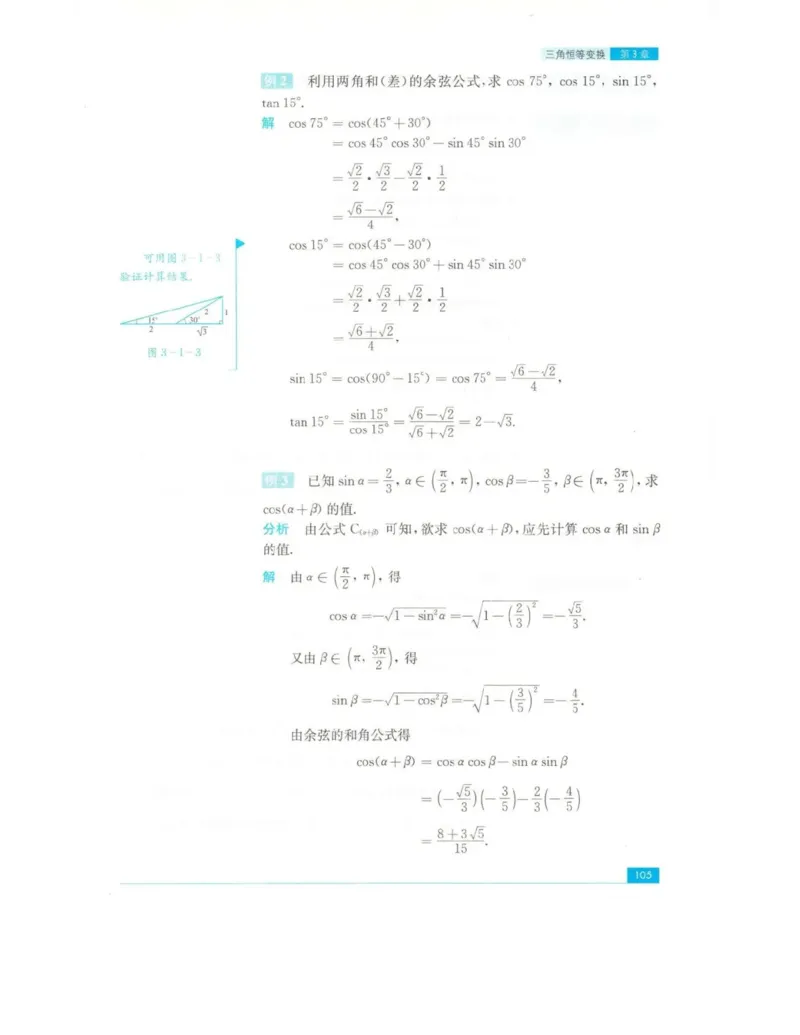 三角恒等变换 第3章
例2 利用两角和(差)的余弦公式,求 cos 75°, cos 15°, sin 15°,
tan 15°.
解 cos 75° = cos(45° + 30°)
= cos 45° cos 30° − sin 45° sin 30°
= √2/2 · √3/2 − √2/2 · 1/2
= (√6 − √2)/4,
cos 15° = cos(45° − 30°)
= cos 45° cos 30° + sin 45° sin 30°
= √2/2 · √3/2 + √2/2 · 1/2
= (√6 + √2)/4,
sin 15° = cos(90° − 15°) = cos 75° = (√6 − √2)/4,
tan 15° = sin 15°/cos 15° = (√6 − √2)/(√6 + √2) = 2 − √3.
可用图 3-1-3
验证计算结果.
15° 30° 2 1
2 √3
图 3-1-3
例3 已知 sin α = 2/3, α ∈ (π/2, π), cos β = −3/5, β ∈ (π, 3π/2), 求
cos(α + β) 的值.
分析 由公式 C(α+β) 可知,欲求 cos(α + β),应先计算 cos α 和 sin β
的值.
解 由 α ∈ (π/2, π), 得
cos α = −√(1 − sin²α) = −√(1 − (2/3)²) = −√5/3.
又由 β ∈ (π, 3π/2), 得
sin β = −√(1 − cos²β) = −√(1 − (3/5)²) = −4/5.
由余弦的和角公式得
cos(α + β) = cos α cos β − sin α sin β
= (−√5/3)(−3/5) − 2/3(−4/5)
= (8 + 3√5)/15.
105